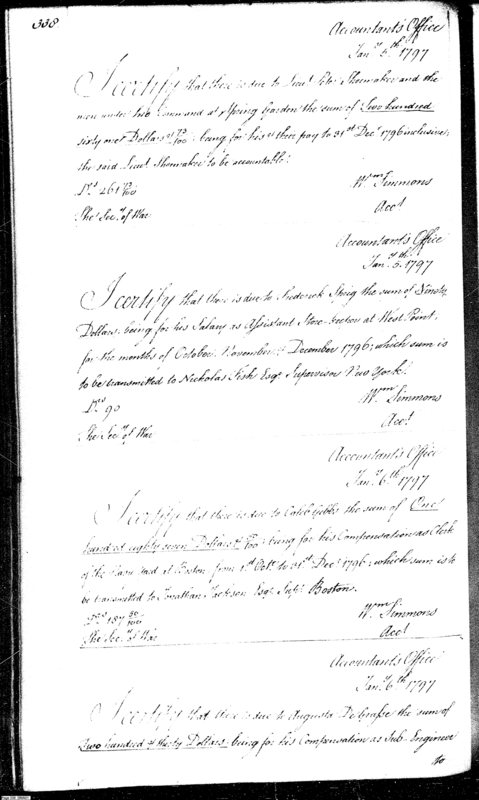 338
Accountant's Office
Jany 5th 1797
I certify that there is due to Lieut Peter Shoemaker and the
men under two Command at Spring Garden the sum of Two hundred
sixty one Dollars & /100 being for his & there pay to 31st Decr 1796 inclusive,
the said Lieut Shoemaker to be accountable.
Drs 261 /100
Wm Simmons
Acct
The Secy of War
Accountant's Office
Jany 5th 1797
I certify that there is due to Frederick the sum of Ninety
Dollars, being for his Salary as Assistant Store-keeper at West Point,
for the months of October November & December 1796; which sum is
to be transmitted to Nickolas Fish Esqr Supervisor New York.
Drs 90
Wm Simmons
Acct
The Secy of War
Accountant's Office
Jany 6th 1797
I certify that there is due to Caleb Gibbs the sum of One
hund at eighty seven Dollars & 50/100 being for his Compensation as Clerk
of the Yard at Boston from 1st Octr to 31st Decr 1796; which sum is to
be transmitted to Jonathan Jackson Esqr Supr Boston.
Drs 187 50/100
Wm Simmons
Acct
The Secy of War
Accountant's Office
Jany 6th 1797
I certify that there is due to Augusta De Grasse the sum of
Two hundred & thirty Dollars being for his Compensation as Sub-Engineer
to